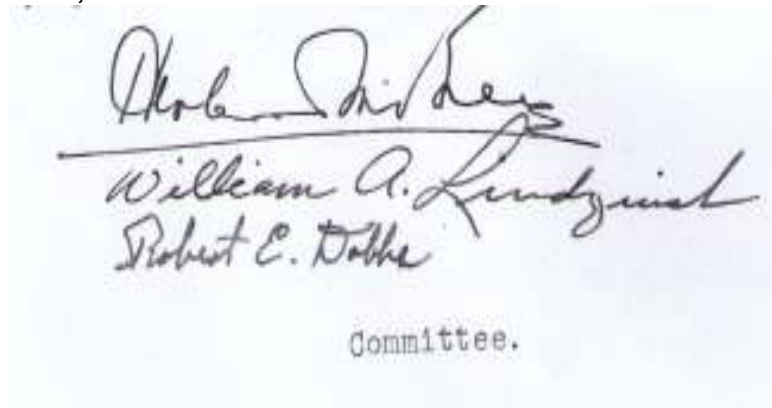 William A. Lindquist
Robert E. Dobbs
Committee.